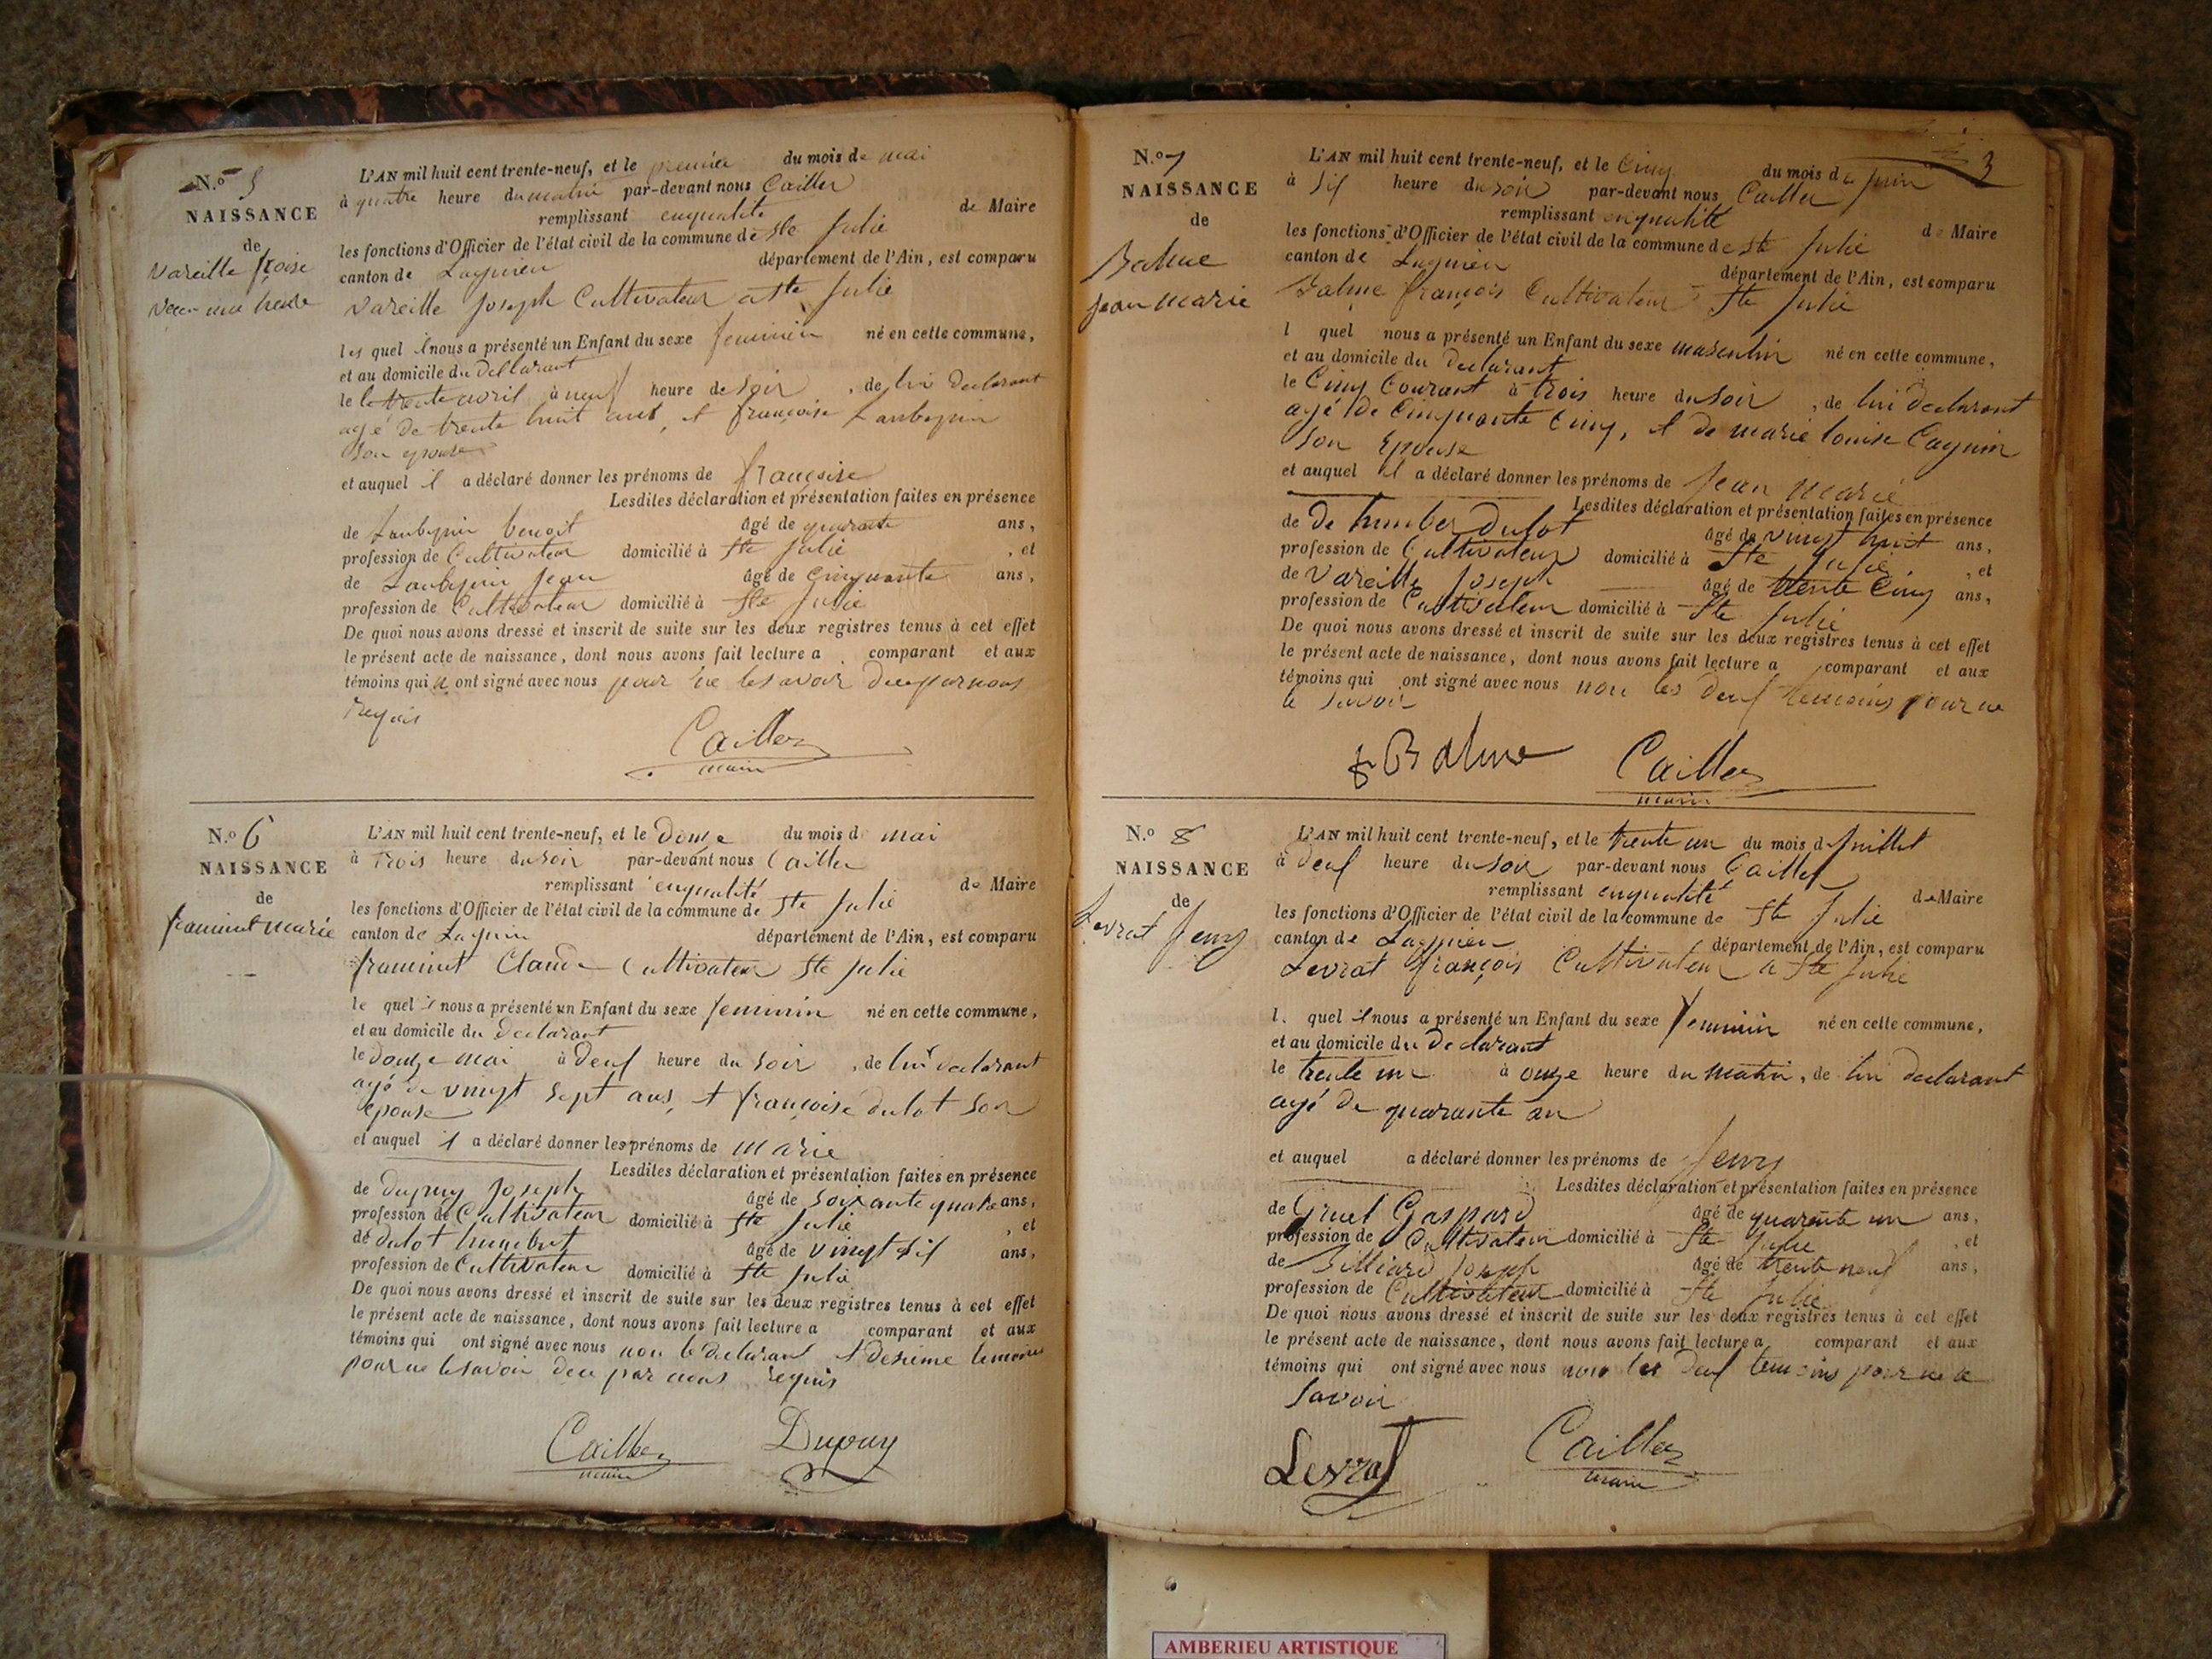 N.o 5
NAISSANCE
de
Vareille froise
L'AN mil huit cent trente-neuf, et le premier du mois de mai
à quatre heure du matin par-devant nous Cailler
remplissant enqualité de Maire
les fonctions d'Officier de l'état civil de la commune de Ste Julie
canton de Lagnieu département de l'Ain, est comparu
Vareille Joseph Cultivateur a Ste Julie
les quel il nous a présenté un Enfant du sexe feminin né en cette commune,
et au domicile du declarant
le le trente avril à neuf heure de soir, de lui declarant
agé de trente huit ans, et françoise Laubepin
son epouse
et auquel il a déclaré donner les prénoms de françoise
Lesdites déclaration et présentation faites en présence
de Laubepin benoit âgé de quarante ans,
profession de Cultivateur domicilié à Ste Julie, et
de Laubepin Jean âgé de cinquante ans,
profession de Cultivateur domicilié à Ste Julie
De quoi nous avons dressé et inscrit de suite sur les deux registres tenus à cet effet
le présent acte de naissance, dont nous avons fait lecture a comparant et aux
témoins qui n ont signé avec nous pour ne le savoir de ce par nous
requis
Cailler
maire
N.o 6
NAISSANCE
de
framinet marie
L'AN mil huit cent trente-neuf, et le douze du mois d mai
à trois heure du soir par-devant nous Cailler
remplissant enqualité de Maire
les fonctions d'Officier de l'état civil de la commune de Ste Julie
canton de Lagnieu département de l'Ain, est comparu
framinet Claude Cultivateur Ste Julie
le quel il nous a présenté un Enfant du sexe feminin né en cette commune,
et au domicile du declarant
le douze mai à deux heure du soir, de lui declarant
agé de vingt sept ans, et françoise dulot son
epouse
et auquel il a déclaré donner les prénoms de marie
Lesdites déclaration et présentation faites en présence
de dupuy Joseph âgé de soixante quatre ans,
profession de Cultivateur domicilié à Ste Julie, et
de dulot humbert âgé de vingt six ans,
profession de Cultivateur domicilié à Ste Julie
De quoi nous avons dressé et inscrit de suite sur les deux registres tenus à cet effet
le présent acte de naissance, dont nous avons fait lecture a comparant et aux
témoins qui ont signé avec nous non le declarant et temoins
pour ne le savoir de ce par nous requis
Cailler Dupuy
maire
3
N.o 7
NAISSANCE
de
Balme
jean marie
L'AN mil huit cent trente-neuf, et le Cinq du mois de juin
à six heure du soir par-devant nous Cailler
remplissant en qualité de Maire
les fonctions d'Officier de l'état civil de la commune de Ste Julie
canton de Lagnieu département de l'Ain, est comparu
Balme françois Cultivateur Ste Julie
l quel nous a présenté un Enfant du sexe masculin né en cette commune,
et au domicile du declarant
le Cinq Courant à trois heure du soir, de lui declarant
agé de Cinquante Cinq, et de marie louise Cagnin
son Epouse
et auquel il a déclaré donner les prénoms de Jean marie
Lesdites déclaration et présentation faites en présence
de De humber Dulot âgé de vingt huit ans,
profession de Cultivateur domicilié à Ste Julie, et
de Vareille Joseph âgé de trente Cinq ans,
profession de Cultivateur domicilié à Ste Julie
De quoi nous avons dressé et inscrit de suite sur les deux registres tenus à cet effet
le présent acte de naissance, dont nous avons fait lecture a comparant et aux
témoins qui ont signé avec nous non les deux temoins pour ne
le savoir
f Balme Cailler
maire
N.o 8
NAISSANCE
de
Levrat Jenny
L'AN mil huit cent trente-neuf, et le trente un du mois d Juillet
à deux heure du soir par-devant nous Cailler
remplissant enqualité de Maire
les fonctions d'Officier de l'état civil de la commune de Ste Julie
canton de Lagnieu département de l'Ain, est comparu
Levrat françois Cultivateur a Ste Julie
l quel il nous a présenté un Enfant du sexe feminin né en cette commune,
et au domicile du Declarant
le trente un à onze heure du matin, de lui declarant
agé de quarante an
et auquel a déclaré donner les prénoms de Jenny
Lesdites déclaration et présentation faites en présence
de Gruel Gaspard âgé de quarente un ans,
profession de Cultivateur domicilié à Ste Julie, et
de Billiard Joseph âgé de trente neuf ans,
profession de Cultivateur domicilié à Ste Julie
De quoi nous avons dressé et inscrit de suite sur les deux registres tenus à cet effet
le présent acte de naissance, dont nous avons fait lecture a comparant et aux
témoins qui ont signé avec nous non les deux temoins pour ne le
savoir
Levrat Cailler
maire
AMBERIEU ARTISTIQUE